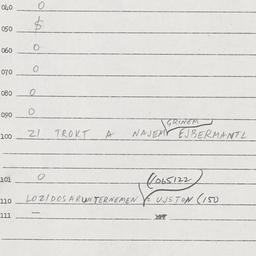 040 0
050 $
060 0
070 0
080 0
090 0
GRINEM
100 21 TROKT A NAJEM EJBERMANTL
101 0 (1065122)
110 LOZIDOSARUNTERNEMEN F UJSTON (150
111 —